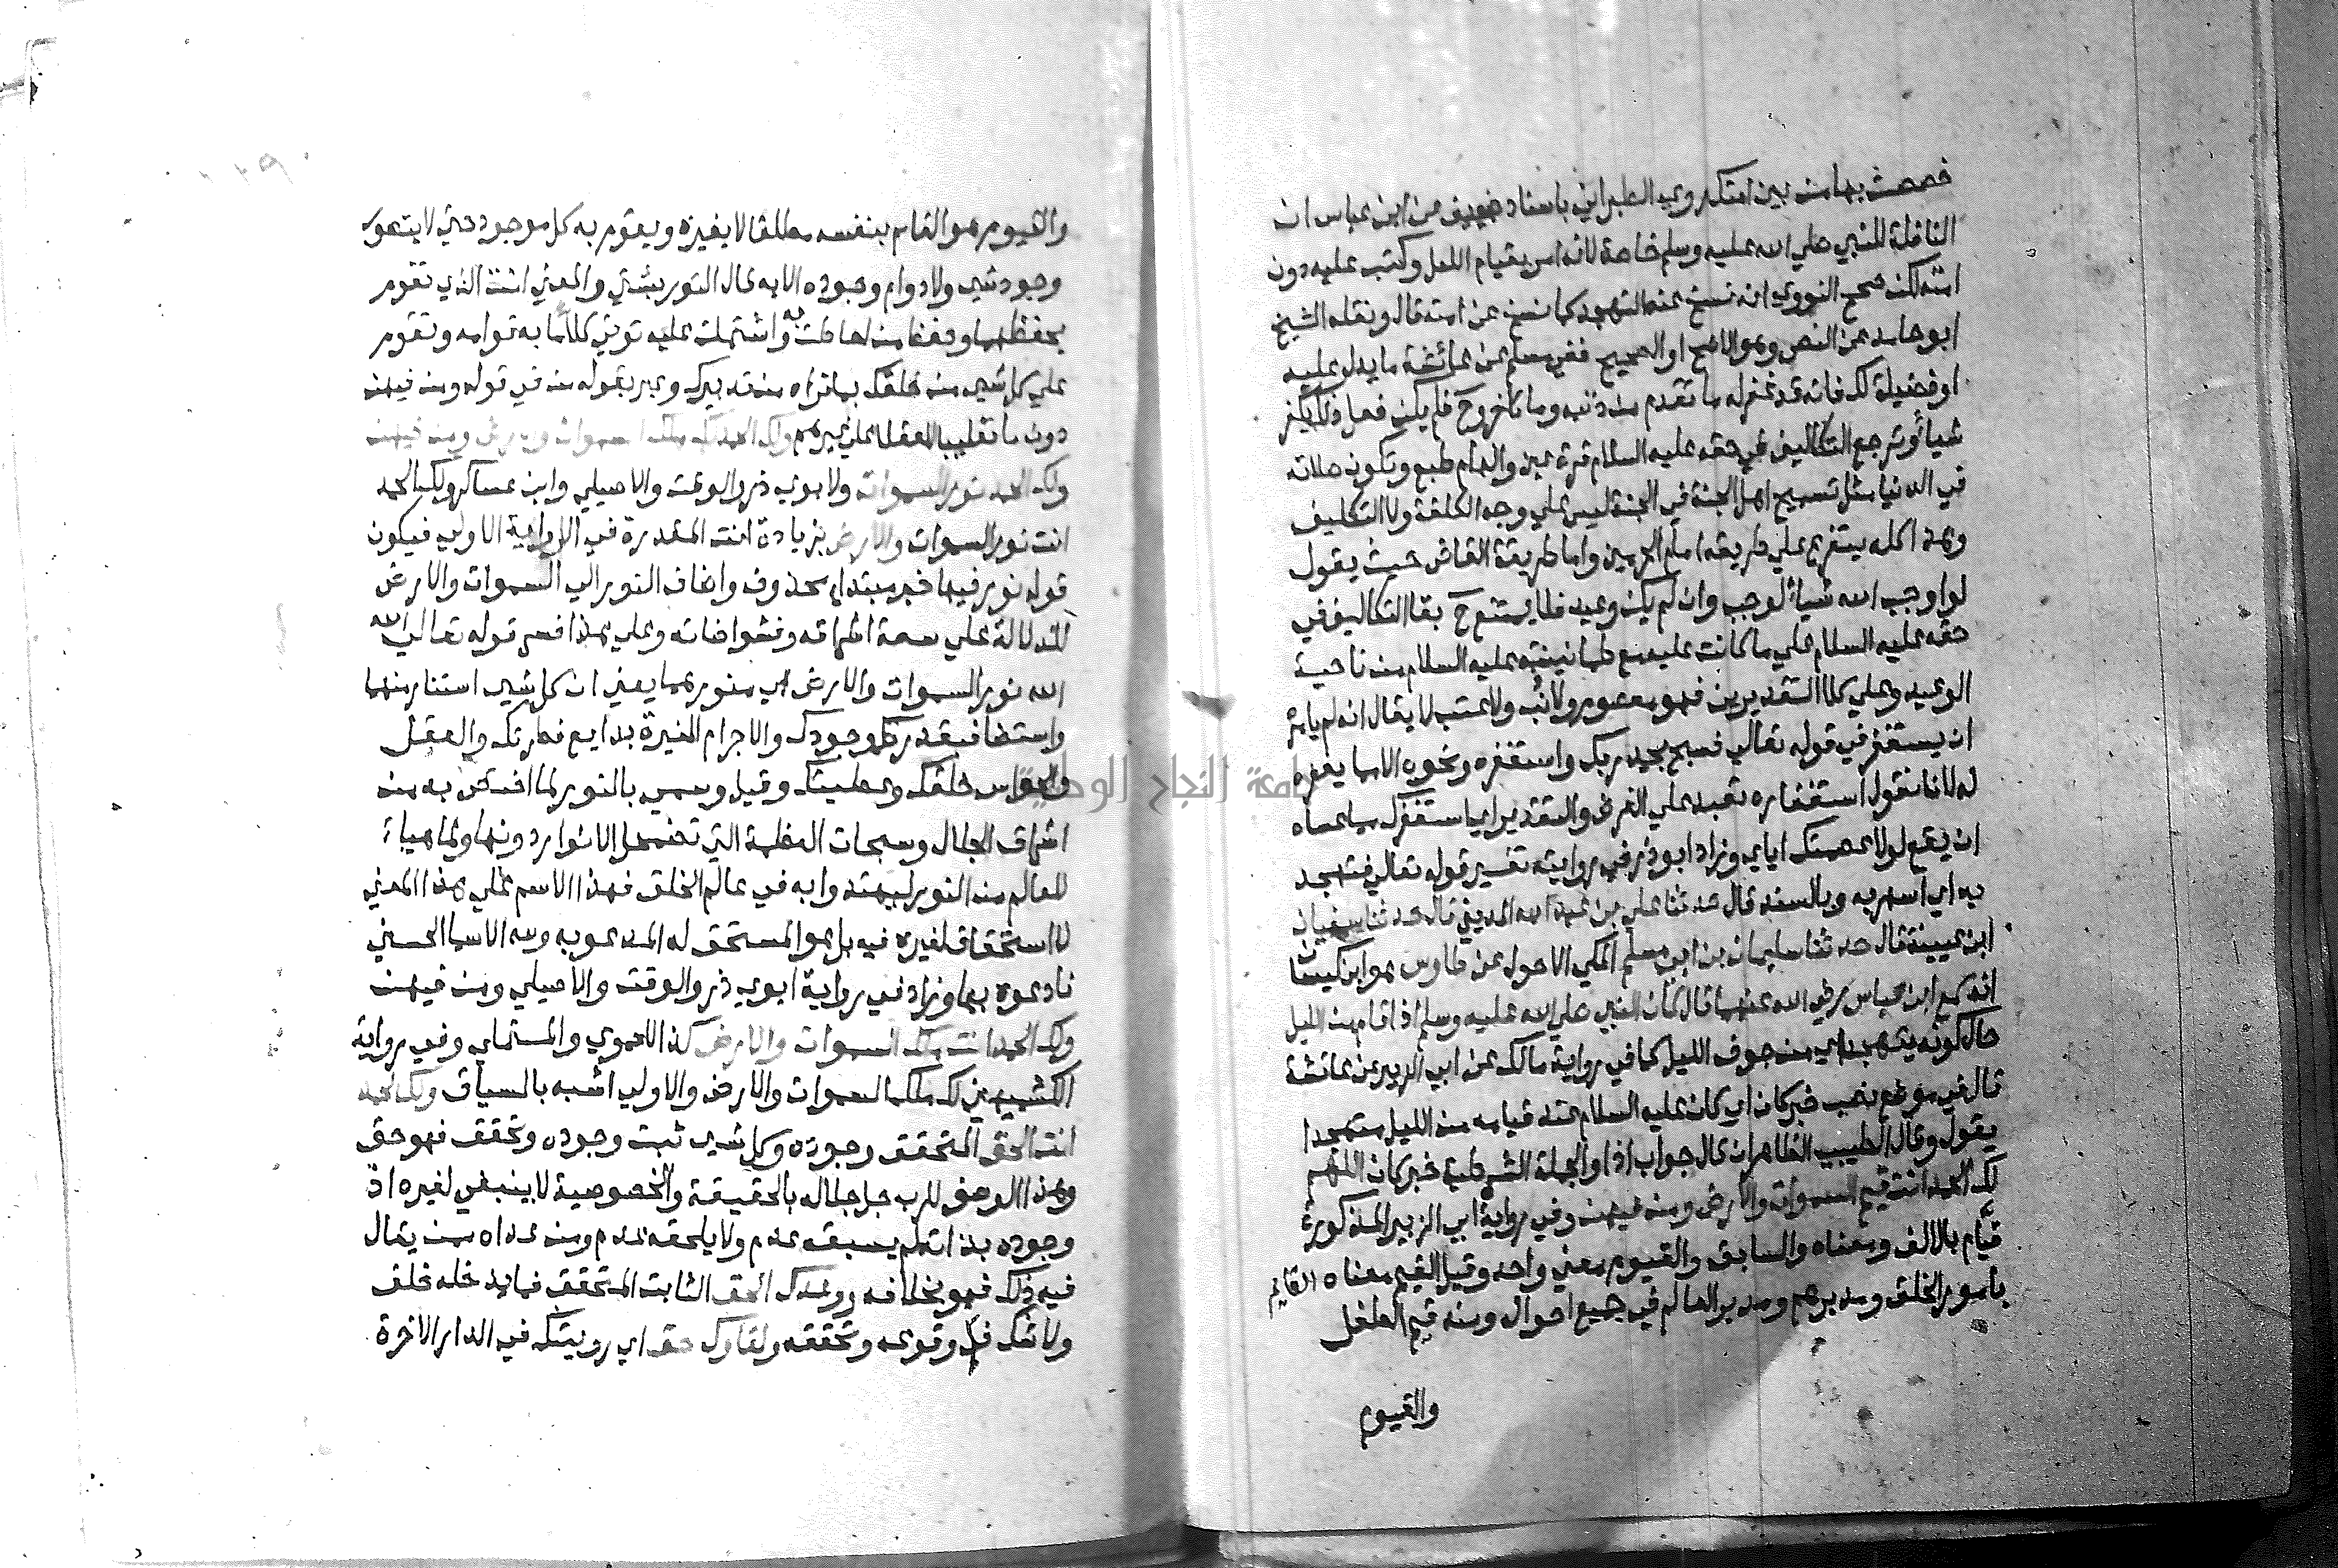 خصصت بها من بين امتك روي الطبراني باسناد ضعيف عن ابن عباس ان
النافلة للنبي صلي الله عليه وسلم خاصة لانه امر بقيام الليل وكتب عليه دون
امته لكن صحح النووي انه نسخ عنه التهجد كما نسخ عن امته قال ونقله الشيخ
ابو حامد عن النص وهو الاصح او الصحيح ففي مسلم عن عائشة ما يدل عليه
او فضيلة لك فانه قد غفر له ما تقدم من ذنبه وما تاخر وح فلم يكن فعل ذلك يكفر
شيأ وترجع التكاليف في حقه عليه السلام قرة عين والهام طبع وتكون صلاته
في الدنيا مثل تسبيح اهل الجنة في الجنة ليس علي وجه الكلفة ولا التكليف
وهذا كله يتفرع علي طريقه امام الحرمين واما طريقة القاض حيث يقول
لو اوجب الله شيأ لوجب وان لم يكن وعيد فلا يمتنع ح بقا التكاليف في
حقه عليه السلام علي ما كانت عليه مع طمانينته عليه السلام من ناحية
الوعيد وعلي كلا التقديرين فهو معصوم ولا ذنب ولا عتب لا يقال انه لم يامره
ان يستغفر في قوله تعالي فسبح بحمد ربك واستغفره ونحوه الا مما يغفره
له لانا نقول استغفاره تعبد علي الفرض والتقدير اي استغفرك مما عساه
ان يقع لولا عصمتك اياي وزاد ابو ذر في روايته تفسير قوله تعالي فتهجد
به اي اسهر به وبالسند قال حدثنا علي بن عبد الله المديني قال حدثنا سفيان
ابن عيينة قال حدثنا سليمان بن ابي مسلم المكي الاحول عن طاوس هو ابن كيسان
انه سمع ابن عباس رضي الله عنهما قال كان النبي صلي الله عليه وسلم اذا قام من الليل
حال كونه يتهجد اي من جوف الليل كما في رواية مالك عن ابي الزبير عن عائشة
قال في موضع نصب خبر كان اي كان عليه السلام عند قيامه من الليل متهجدا
يقول وقال الطيبي الظاهر ان قال جواب اذا والجملة الشرطية خبر كان اللهم
لك الحمد انت قيم السموات والارض ومن فيهن وفي رواية ابي الزبير المذكورة
قيام بالالف ومعناه والسابق والقيوم معني واحد وقيل القيم معناه القايم
بامور الخلق ومدبرهم ومدبر العالم في جميع احواله ومنه قيم الطفل
والقيوم
والقيوم هو القايم بنفسه مطلقا لا بغيره ويقوم به كل موجود حتي لا يتصور
وجود شي ولا دوام وجوده الا به قال التوربشتي والمعني انت الذي تقوم
بحفظها وحفظ من احاطت به واشتملت عليه توتي كلا ما به قوامه وتقوم
علي كل شي من خلقك بما تراه من تدبيرك وعبر بقوله من في قوله ومن فيهن
دون ما تغليبا للعقلا علي غيرهم ولك الحمد لك ملك السموات والارض ومن فيهن
ولك الحمد نور السموات ولابوي ذر والوقت والاصيلي وابن عساكر ولك الحمد
انت نور السموات والارض بزيادة انت المقدرة في الرواية الاولي فيكون
قوله نور فيها خبر مبتدا محذوف واضاف النور الي السموات والارض
للدلالة علي سعة اشراقه وفشو اضاته وعلي هذا فسر قوله تعالي الله
الله نور السموات والارض اي منورهما يعني ان كل شي استنار منهما
واستضا فبقدرتك وجودك والاجرام النيرة بدايع فطرتك والعقل
والحواس خلقك وعطيتك وقيل وسمي بالنور لما اختص به من
اشراق الجلال وسبحات العظمة التي تضمحل الانوار دونها ولما هيأ
للعالم من النور ليهتدوا به في عالم الخلق فهذا الاسم علي هذا المعني
لا استحقاق لغيره فيه بل هو المستحق له المدعو به ولله الاسما الحسني
فادعوه بها وزاد في رواية ابوي ذر والوقت والاصيلي ومن فيهن
ولك الحمد انت ملك السموات والارض كذا للحموي والمستملي وفي رواية
الكشميهني لك ملك السموات والارض والاولي اشبه بالسياق ولك الحمد
انت الحق المتحقق وجوده وكل شي ثبت وجوده وتحقق فهو حق
وهذا الوصف للرب جل جلاله بالحقيقة والخصوصية لا ينبغي لغيره اذ
وجوده بذاته لم يسبقه عدم ولا يلحقه عدم ومن عداه ممن يقال
فيه ذلك فهو بخلافه ووعدك الحق الثابت المتحقق فلا يدخله خلف
ولا شك في وقوعه وتحققه ولقاوك حق اي رويتك في الدار الاخرة